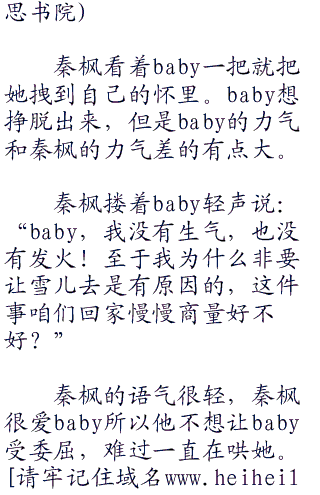 思书院)
秦枫看着baby一把就把
她拽到自己的怀里。baby想
挣脱出来，但是baby的力气
和秦枫的力气差的有点大。
秦枫搂着baby轻声说：
“baby，我没有生气，也没
有发火！至于我为什么非要
让雪儿去是有原因的，这件
事咱们回家慢慢商量好不
好？”
秦枫的语气很轻，秦枫
很爱baby所以他不想让baby
受委屈，难过一直在哄她。
[请牢记住域名www.heihei1